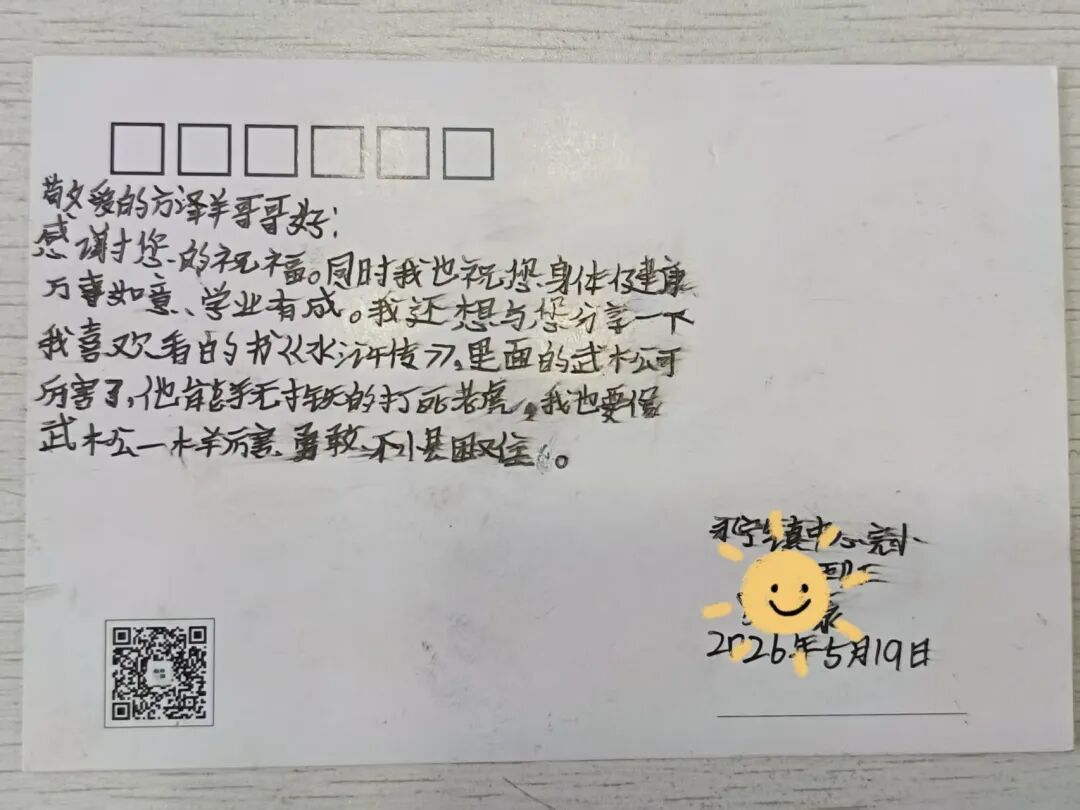 敬爱的方泽羊哥哥好:
感谢您的祝福。同时我也祝您身体健康
万事如意、学业有成。我还想与您分享一下
我喜欢看的书《水浒传》,里面的武松可
厉害了,他能赤手无扌铁的打死老虎,我也要像
武松一样厉害、勇敢、不小县困住。
永宁镇中心完小
2026年5月19日